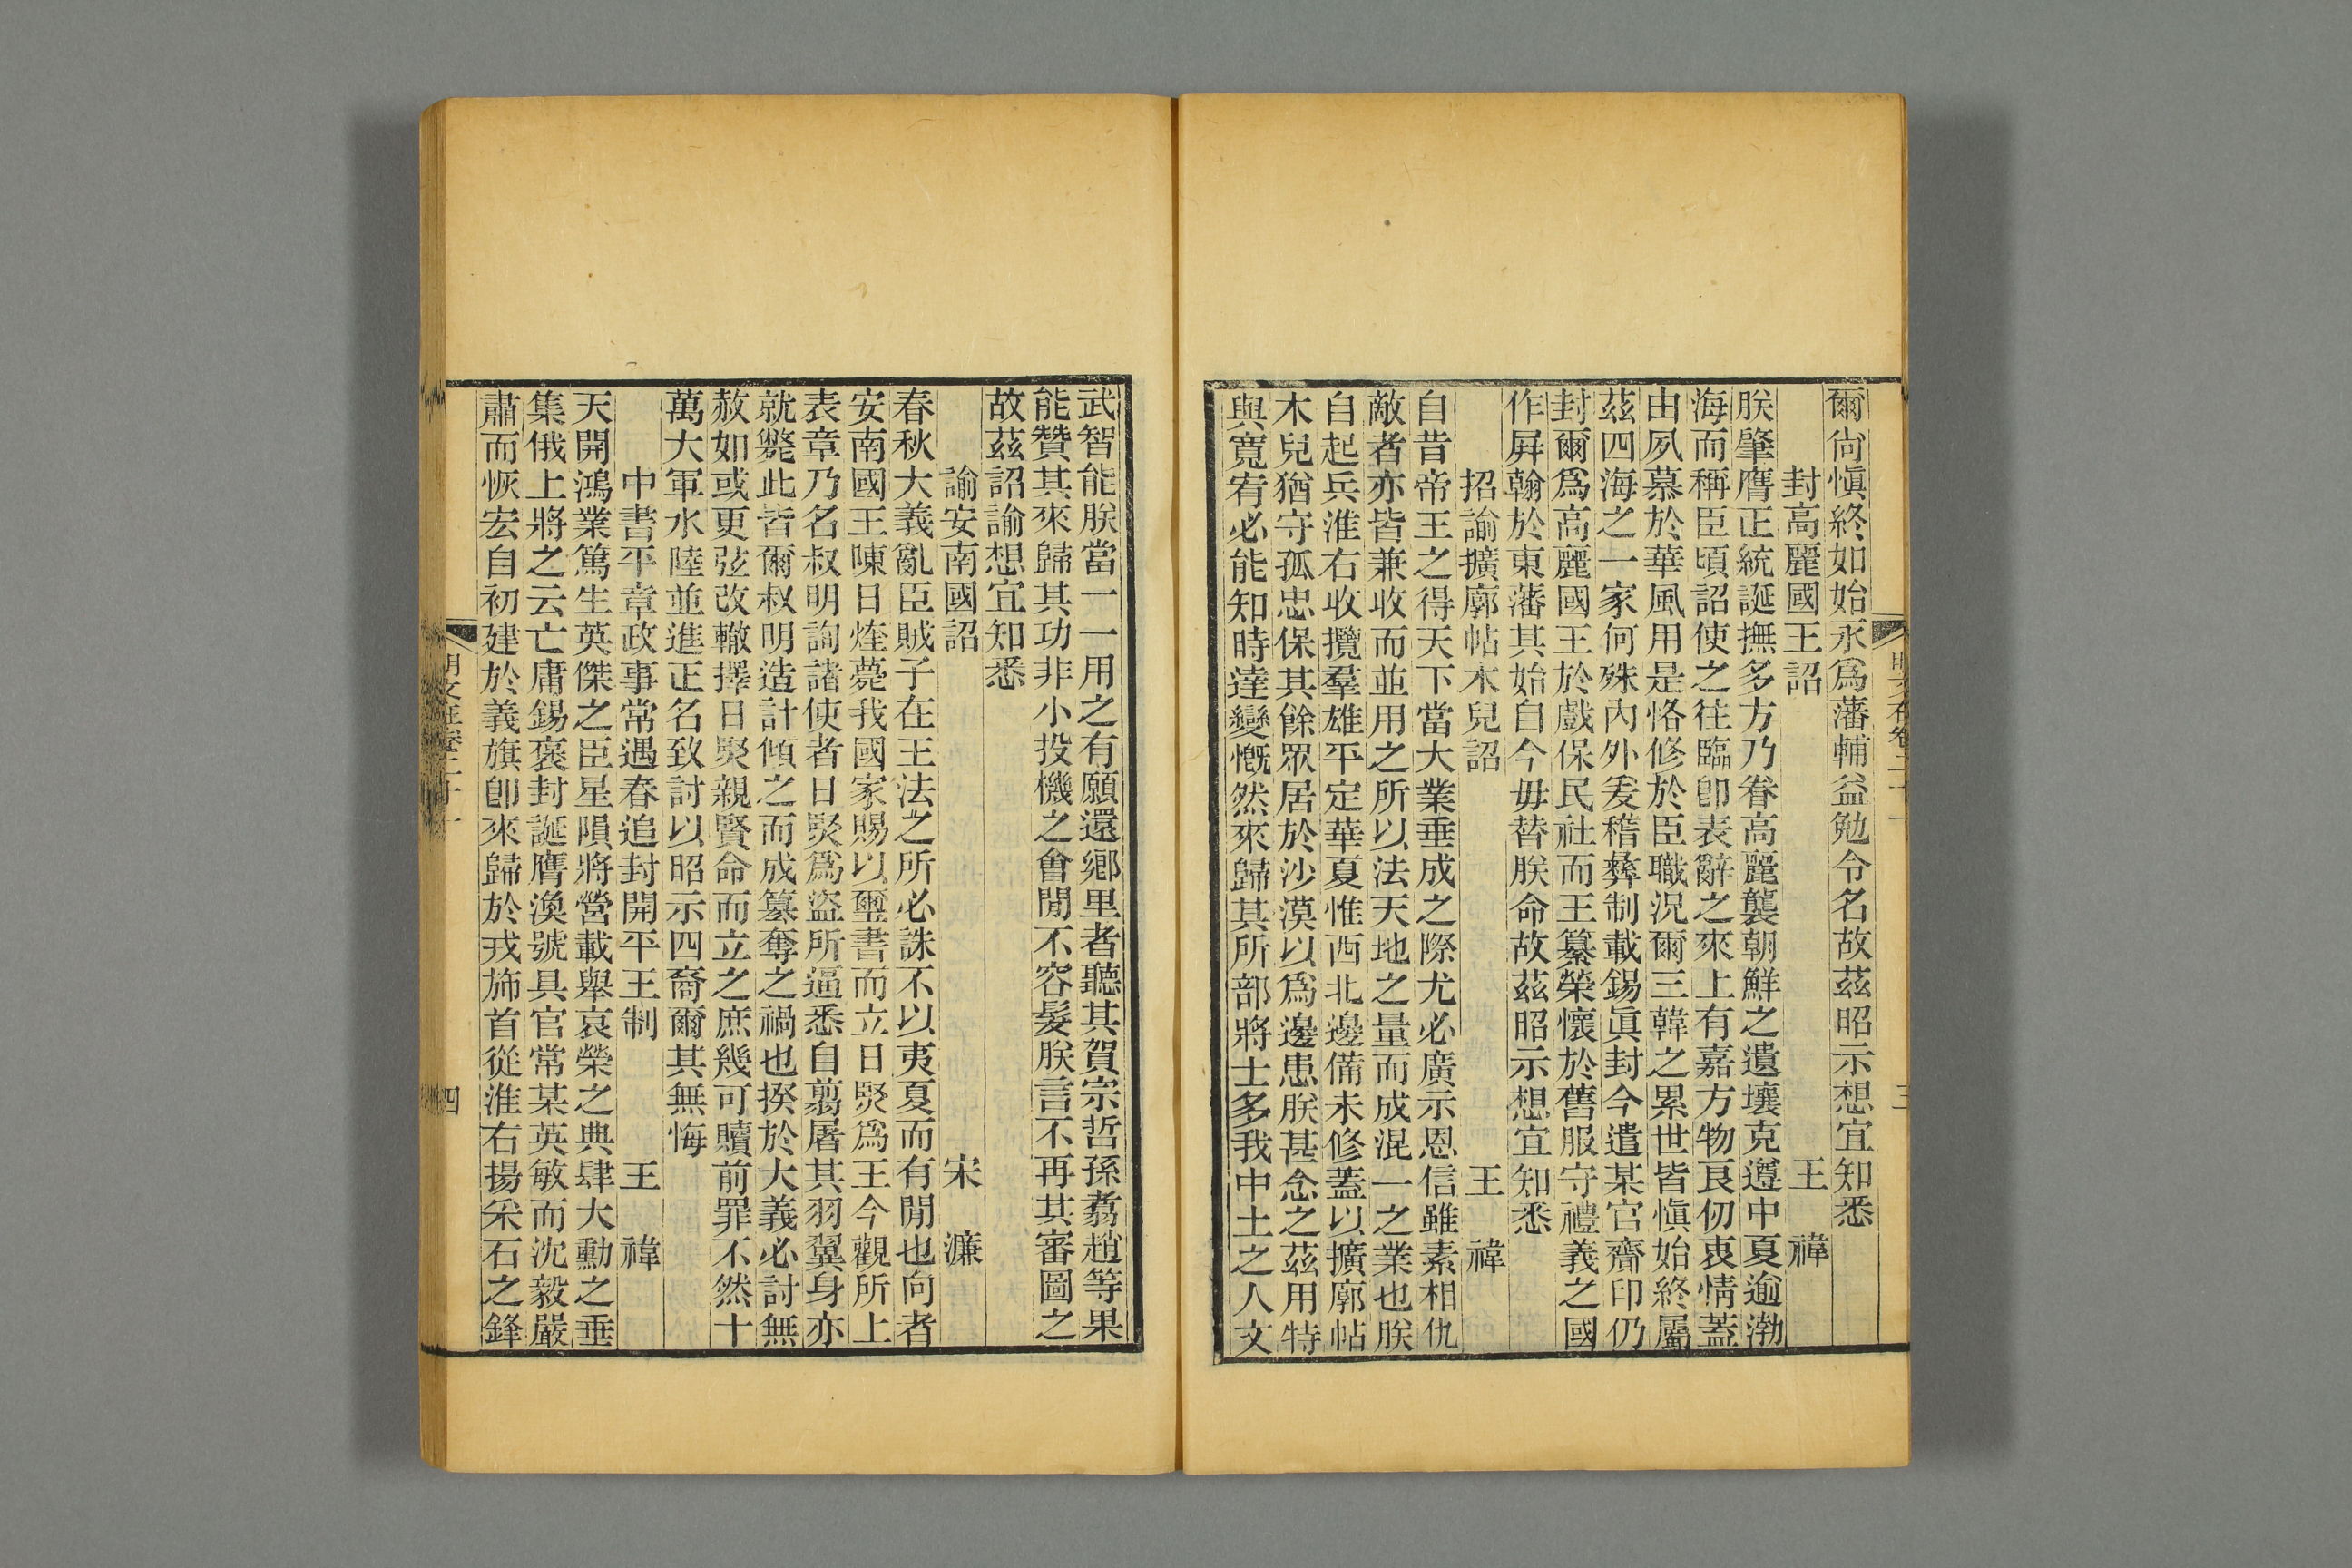 爾尙愼終如始永爲藩輔益勉令名故茲昭示想宜知悉
封高麗國王詔 王禕
朕肇膺正統誕撫多方乃眷高麗襲朝鮮之遺壤克遵中夏逾渤
海而稱臣頃詔使之往臨卽表辭之來上有嘉方物良仞衷情蓋
由夙慕於華風用是恪修於臣職況爾三韓之累世皆愼始終屬
茲四海之一家何殊內外爰稽彝制載錫眞封今遣某官齎印仍
封爾爲高麗國王於戲保民社而王纂榮懷於舊服守禮義之國
作屛翰於東藩其始自今毋替朕命故茲昭示想宜知悉
招諭擴廓帖木兒詔 王禕
自昔帝王之得天下當大業垂成之際尤必廣示恩信雖素相仇
敵者亦皆兼收而並用之所以法天地之量而成混一之業也朕
自起兵淮右收攬羣雄平定華夏惟西北邊備未修蓋以擴廓帖
木兒猶守孤忠保其餘眾居於沙漠以爲邊患朕甚念之茲用特
與寬宥必能知時達變慨然來歸其所部將士多我中土之人文
武智能朕當一一用之有願還鄉里者聽其賀宗哲孫翥趙等果
能贊其來歸其功非小投機之會閒不容髮朕言不再其審圖之
故茲詔諭想宜知悉
諭安南國詔 宋濂
春秋大義亂臣賊子在王法之所必誅不以夷夏而有閒也向者
安南國王陳日煃薨我國家賜以璽書而立日熞爲王今觀所上
表章乃名叔明詢諸使者日熞爲盜所逼悉自翦屠其羽翼身亦
就斃此皆爾叔明造計傾之而成簒奪之禍也揆於大義必討無
赦如或更弦改轍擇日熞親賢命而立之庶幾可贖前罪不然十
萬大軍水陸並進正名致討以昭示四裔爾其無悔
中書平章政事常遇春追封開平王制 王禕
天開鴻業篤生英傑之臣星隕將營載舉哀榮之典肆大勳之垂
集俄上將之云亡庸錫褒封誕膺渙號具官常某英敏而沈毅嚴
肅而恢宏自初建於義旗卽來歸於戎旆首從淮右揚采石之鋒
四